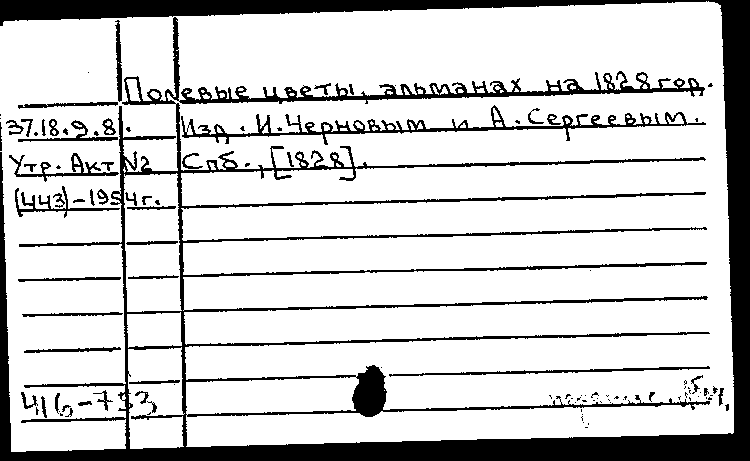 Полевые цветы, альманах на 1828 год.
37.18.9.8. Изд. И. Черновым и А. Сергеевым.
Утр. Акт №2 Спб., [1828].
(443)-1954г.
416-753